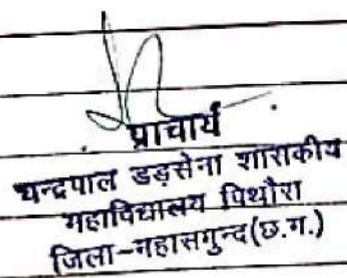 प्राचार्य
चन्द्रपाल डड़सेना शासकीय
महाविद्यालय पिथौरा
जिला-महासमुन्द(छ.ग.)